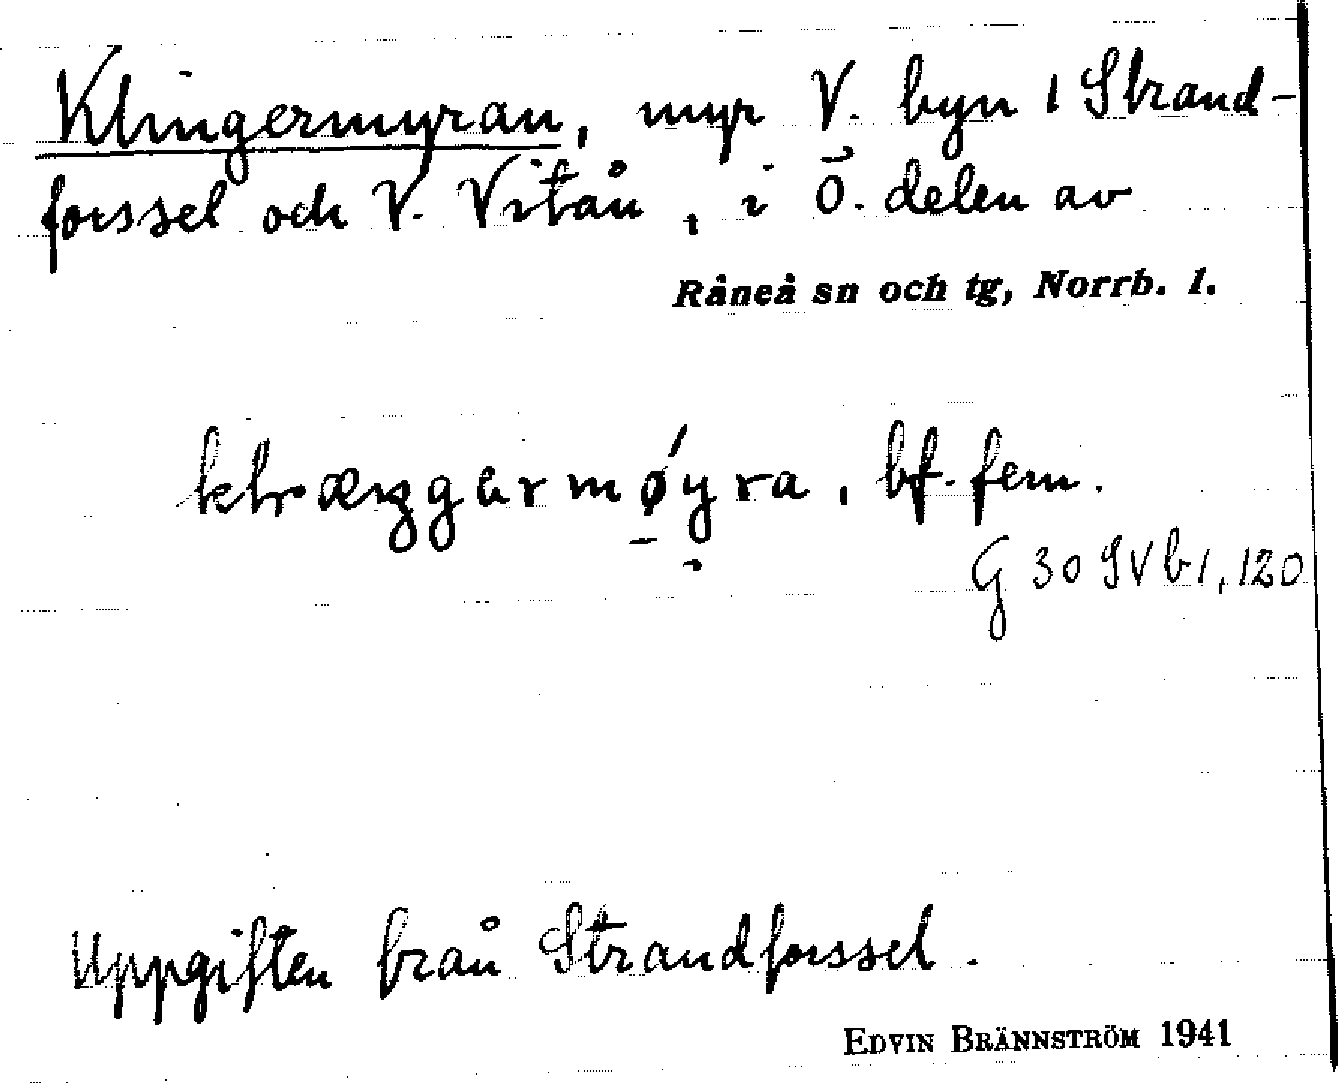 Klingermyran, myr V. byn i Strand-
forssel och V. Vitån, i Ö. delen av
Råneå sn och tg, Norrb. l.
bf. fem.
G 30 IV b1, 120
Uppgiften från Strandforssel.
EDVIN BRÄNNSTRÖM 1941